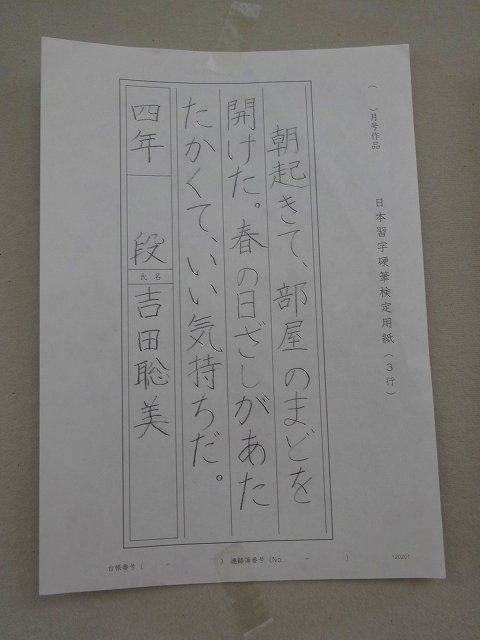 （　　）月号作品
日本習字硬筆検定用紙（３行）
朝起きて、部屋のまどを
開けた。春の日ざしがあた
たかくて、いい気持ちだ。
四年　段
氏名
吉田聡美
台帳番号（　　－　　）連絡簿番号（No.　　－　　）
120201